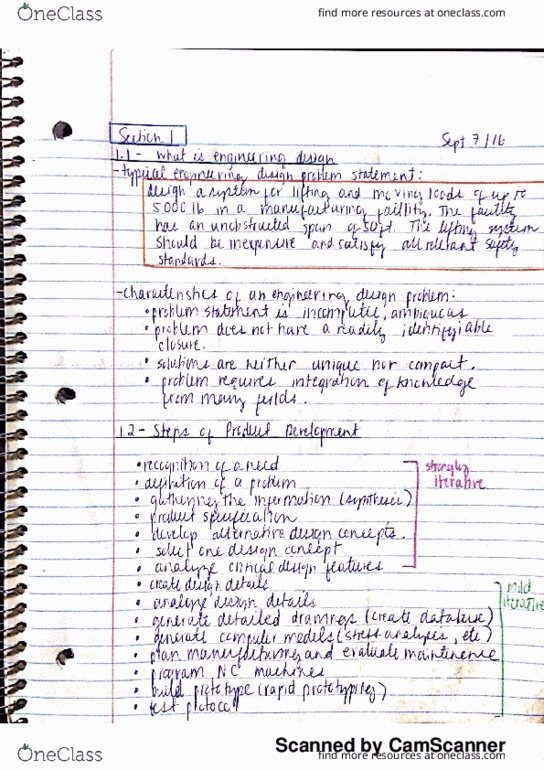 OneClass
find more resources at oneclass.com
Section 1
Sept 7/16
1.1 - What is engineering design
-typical engineering design problem statement:
design a system for lifting and moving loads of up to
5000 lb in a manufacturing facility. The facility
has an unobstructed span of 50ft. The lifting system
should be inexpensive and satisfy all relevant safety
standards.
-characteristics of an engineering design problem:
• problem statement is incomplete, ambiguous
• problem does not have a readily identifiable
closure.
• solutions are neither unique nor compact.
• problem requires integration of knowledge
from many fields.
1.2 - Steps of Product Development
• recognition of a need
• definition of a problem
• gathering the information (synthesis)
• product specification
• develop alternative design concepts.
• select one design concept
• analyze critical design features
strongly
iterative
• create design details
• analyze design details
• generate detailed drawings (create database)
• generate computer models (stress analyses, etc)
• plan manufacturing and evaluate maintinence
• program NC machines
• build prototype (rapid prototyping)
• test
mild
iterative
Scanned by CamScanner
OneClass
find more resources at oneclass.com